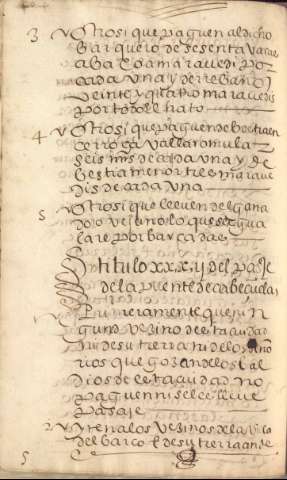 3 Otrosi que paguen al dicho
barquero de sesenta vacas
a ba xo a maravedi por
cada una y de rebaño
veinte y quatro maravedis
por todo el hato
4 Otrosi que paguen de bestia en
cerroga vallar o mula
seis mrs de cada una y de
bestia menor tres marave
dis de cada una
5 Otrosi que lleven del gana
do o vezino lo que se ygua
lare por barcadas
Titulo xxx y del pasaje
de la puente de
Primeramente que nin
gund vezino de esta ciudad
ni de su tierra ni de los
rios que gozan de los
dios de esta ciudad no
paguen ni se le lleve
pasaje
2 Yten a los vezinos de la villa
del barco e de su tierra an de
5